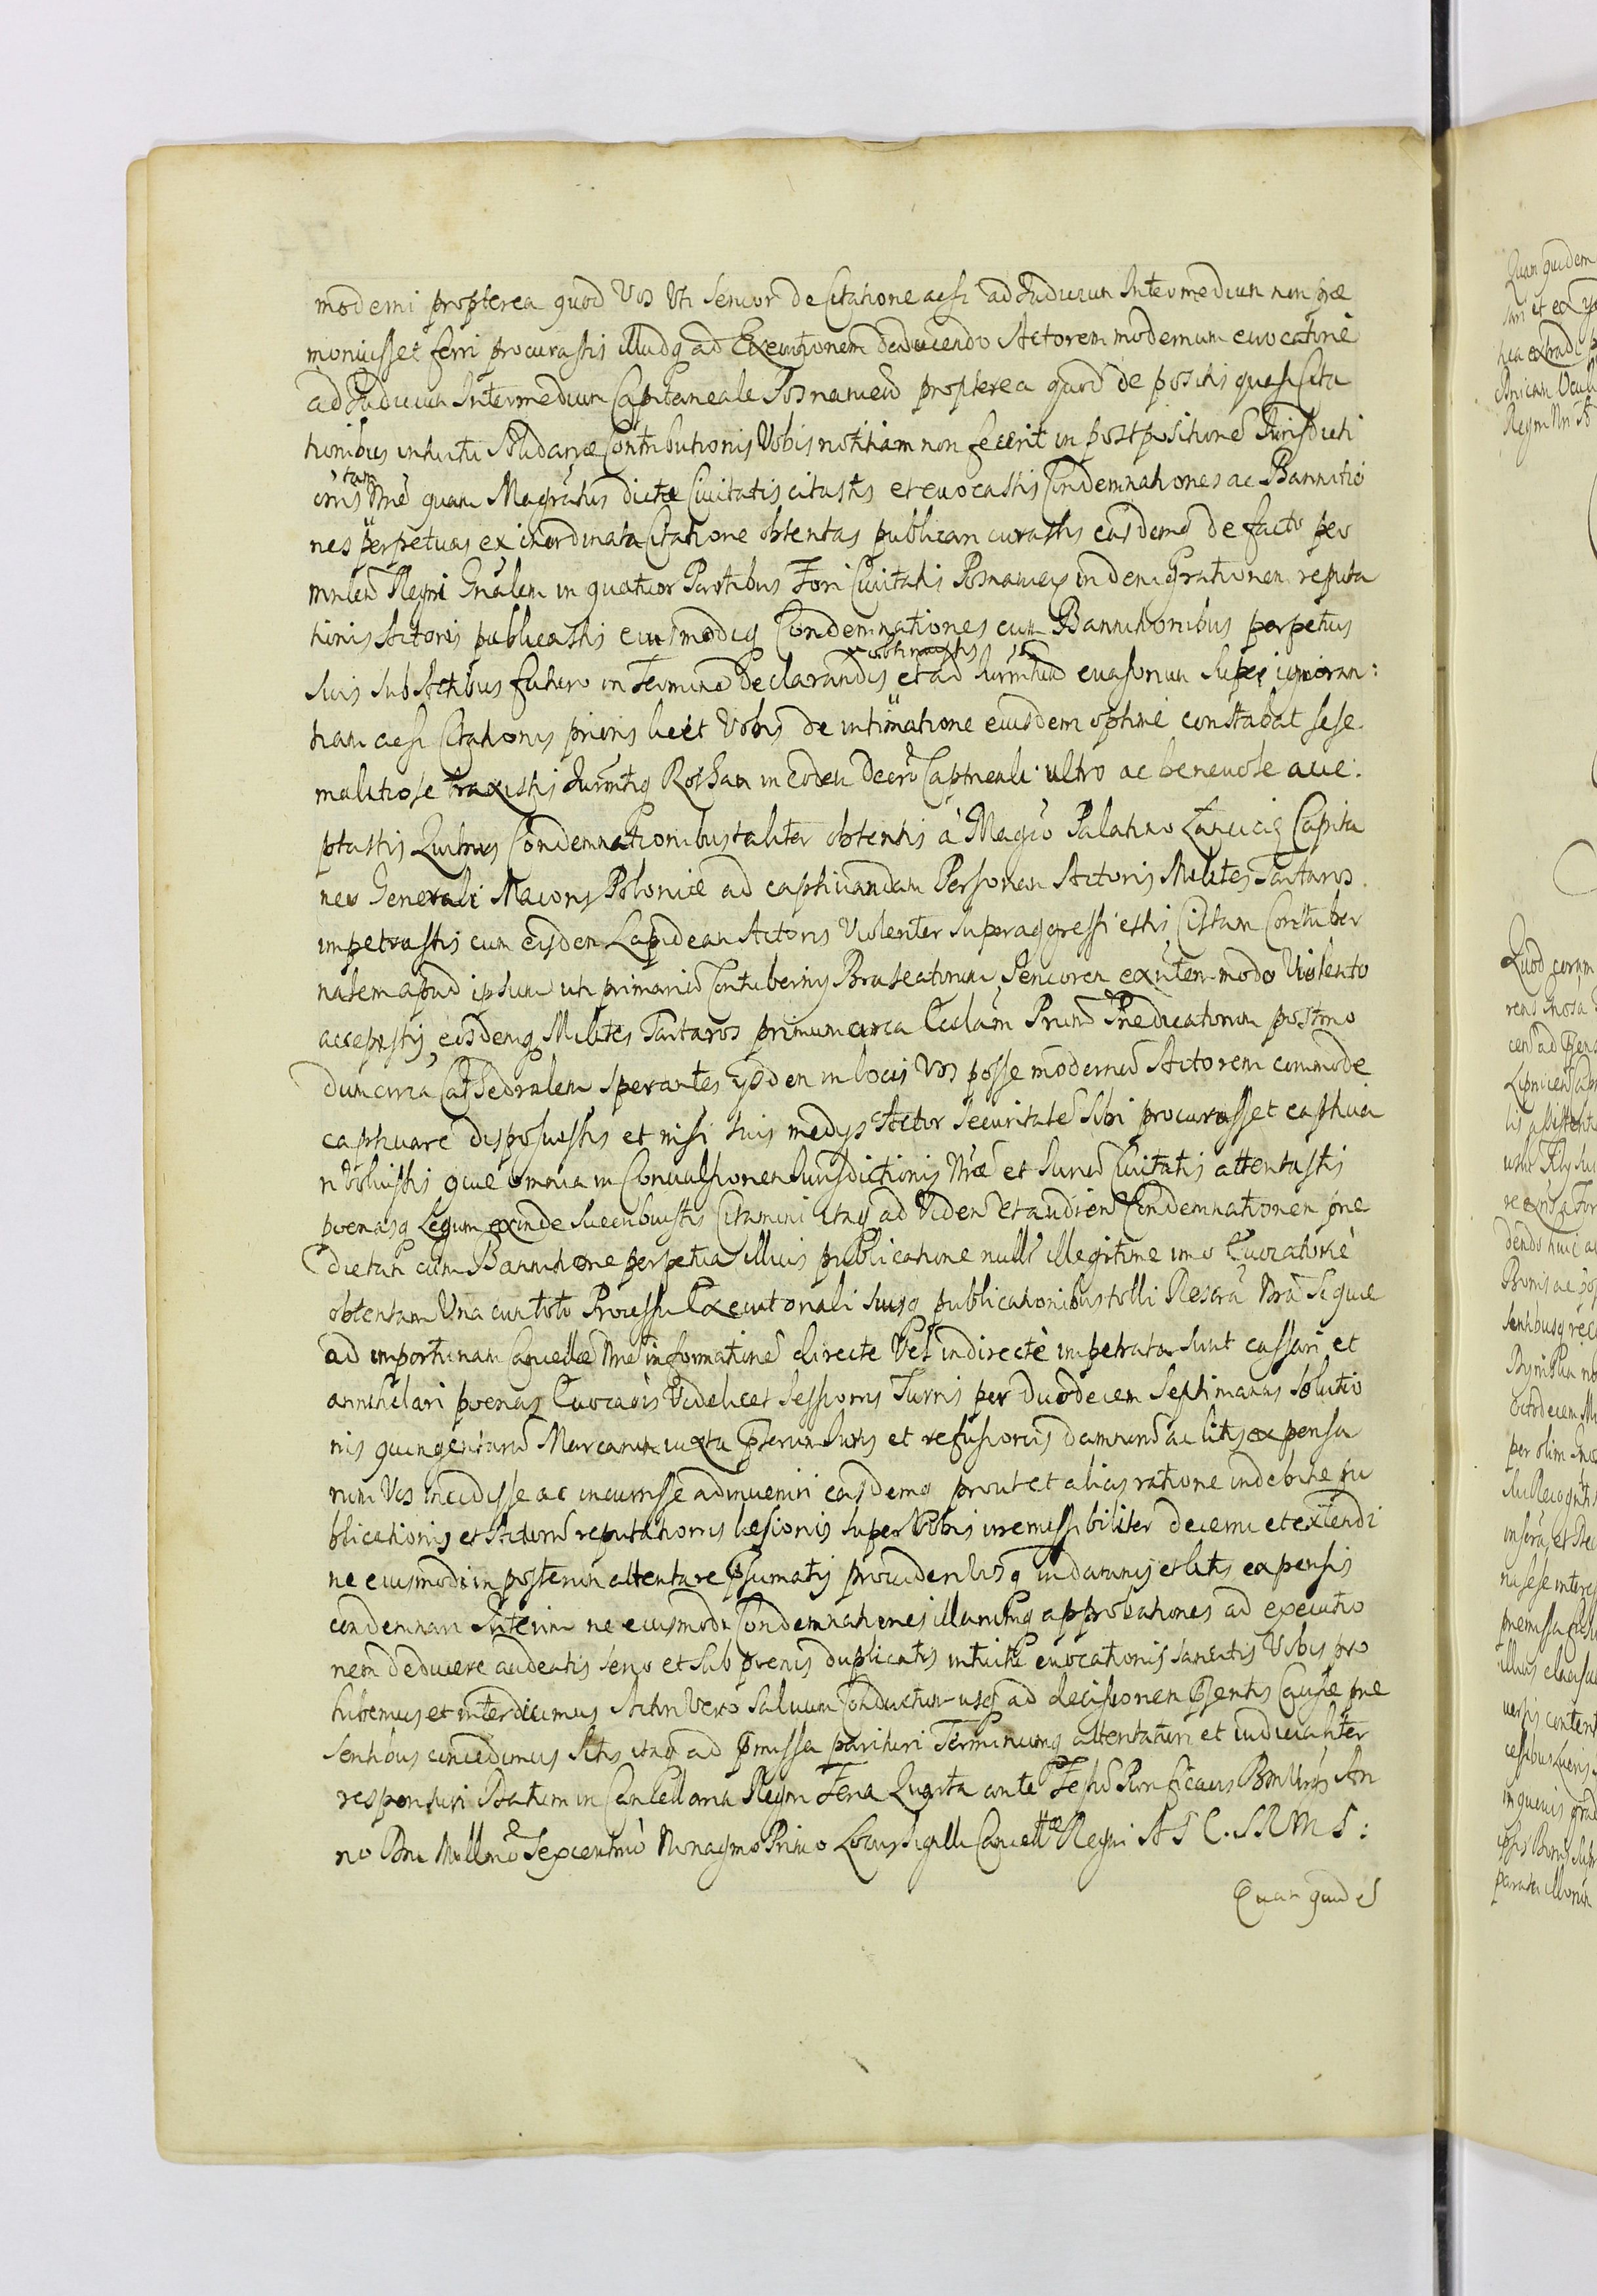 moderni propterea quod Vos Uti Senior de Citatione acsi ad Judicium Intermedium non præ
moniuisset ferri procurastis illudq ad Executionem deducendo Actorem modernum euocatorie
ad Judicium Intermedium Capitaneale Posnanien propterea quod de positis quasi Cita
tionibus intuitu Contributionis Vobis notitiam non fecerit in postpositione Jurisdicti
onis tam Nræ quam Magratus dictæ Ciuitatis citastis et euocastis Condemnationes ac Bannitio
nes perpetuas ex inordinata Citatione obtentas publicari curastis easdemq de facto per
Mnlem Regni Gnalem in quatuor Partibus Fori Ciuitatis Posnanien in denigrationem reputa
tionis Actoris publicastis eiusmodiq Condemnationes cum Bannitionibus perpetuis
suis sub Actibus futuro in Termino Declarandis et ad Jurmtum euasorium super ignoran:
tiam acsi Citationis prioris licet Vobis de intimatione eiusdem optime constabat sese
malitiose traxistis Jurmtq Rotham in eodem Decreto Captneali ultro ac beneuole acce:
ptastis Quibus Condemnationibus taliter obtentis à Magco Palatino Lancicien Capita
neo Generali Maioris Poloniæ ad captiuandam Personam Actoris Milites Tartaros
impetrastis cum eisdem Lapideam Actoris Violenter superaggressi estis Cistam Contuber
nalem apud ipsum uti primarium Contubernij Braseatorum Seniorem existen modo Violento
accepistis eosdemq Milites Tartaros primum circa Ecclam Prum Prædicatorum postmo
dum circa Cathedralem sperantes ijsdem in locis Vos posse modernum Actorem commode
captiuare disposuistis et nisi suis medijs Actor securitatem sibi procurasset captiua
ri Voluistis quæ omnia in Conuulsionem Jurisdictionis Nræ et Jurium Ciuitatis attentastis
poenasq Legum exinde succubuistis Citamini itaq ad Viden et audien Condemnationem præ
dictam cum Bannitione perpetua illius publicatione nullr illegitime imo Euocatorie
obtentam Una cum toto Processu Executionali suisq publicationibus tolli Rescra Nra si quæ
ad importunam Cancellæ Nræ informatione directe Vel indirecte impetrata sunt cassari et
annihilari poenas Euocaõis Videlicet Sessionis Turris per duodecem Septimanas Solutio
nis quingentarum Marcarum iuxta Pscrum Juris et refusionis damnorum ac litis expensa
rum Vos incidisse ac incurrisse adinueniri easdemq prout et alias ratione indebitæ pu
blicationis et Actorum reputationis læsionis super Vobis irremissibiliter decerni et extendi
ne eiusmodi in posterum attentare psumatis prouideri Vosq in damnis et litis expensis
condemnari Interim ne eiusmodi Condemnationes illarumq approbationes ad executio
nem deducere audeatis serio et sub poenis duplicatis intuitu euocationis sancitis Vobis pro
hibemus et interdicimus Actori Vero Saluum Conductum usq ad decisionem Psentis Causæ præ
sentibus concedimus Sitis itaq ad pmissa parituri Terminumq attentaturi et iudicialiter
responsuri Datum in Cancellaria Regni Feria Quarta ante Festum Purificaõis BMVirgis An
no Dni Millmo Sexcentmo Nonagmo Primo Locus Sigilli Cancellæ Regni A T C. S R M S:
Quam quidē